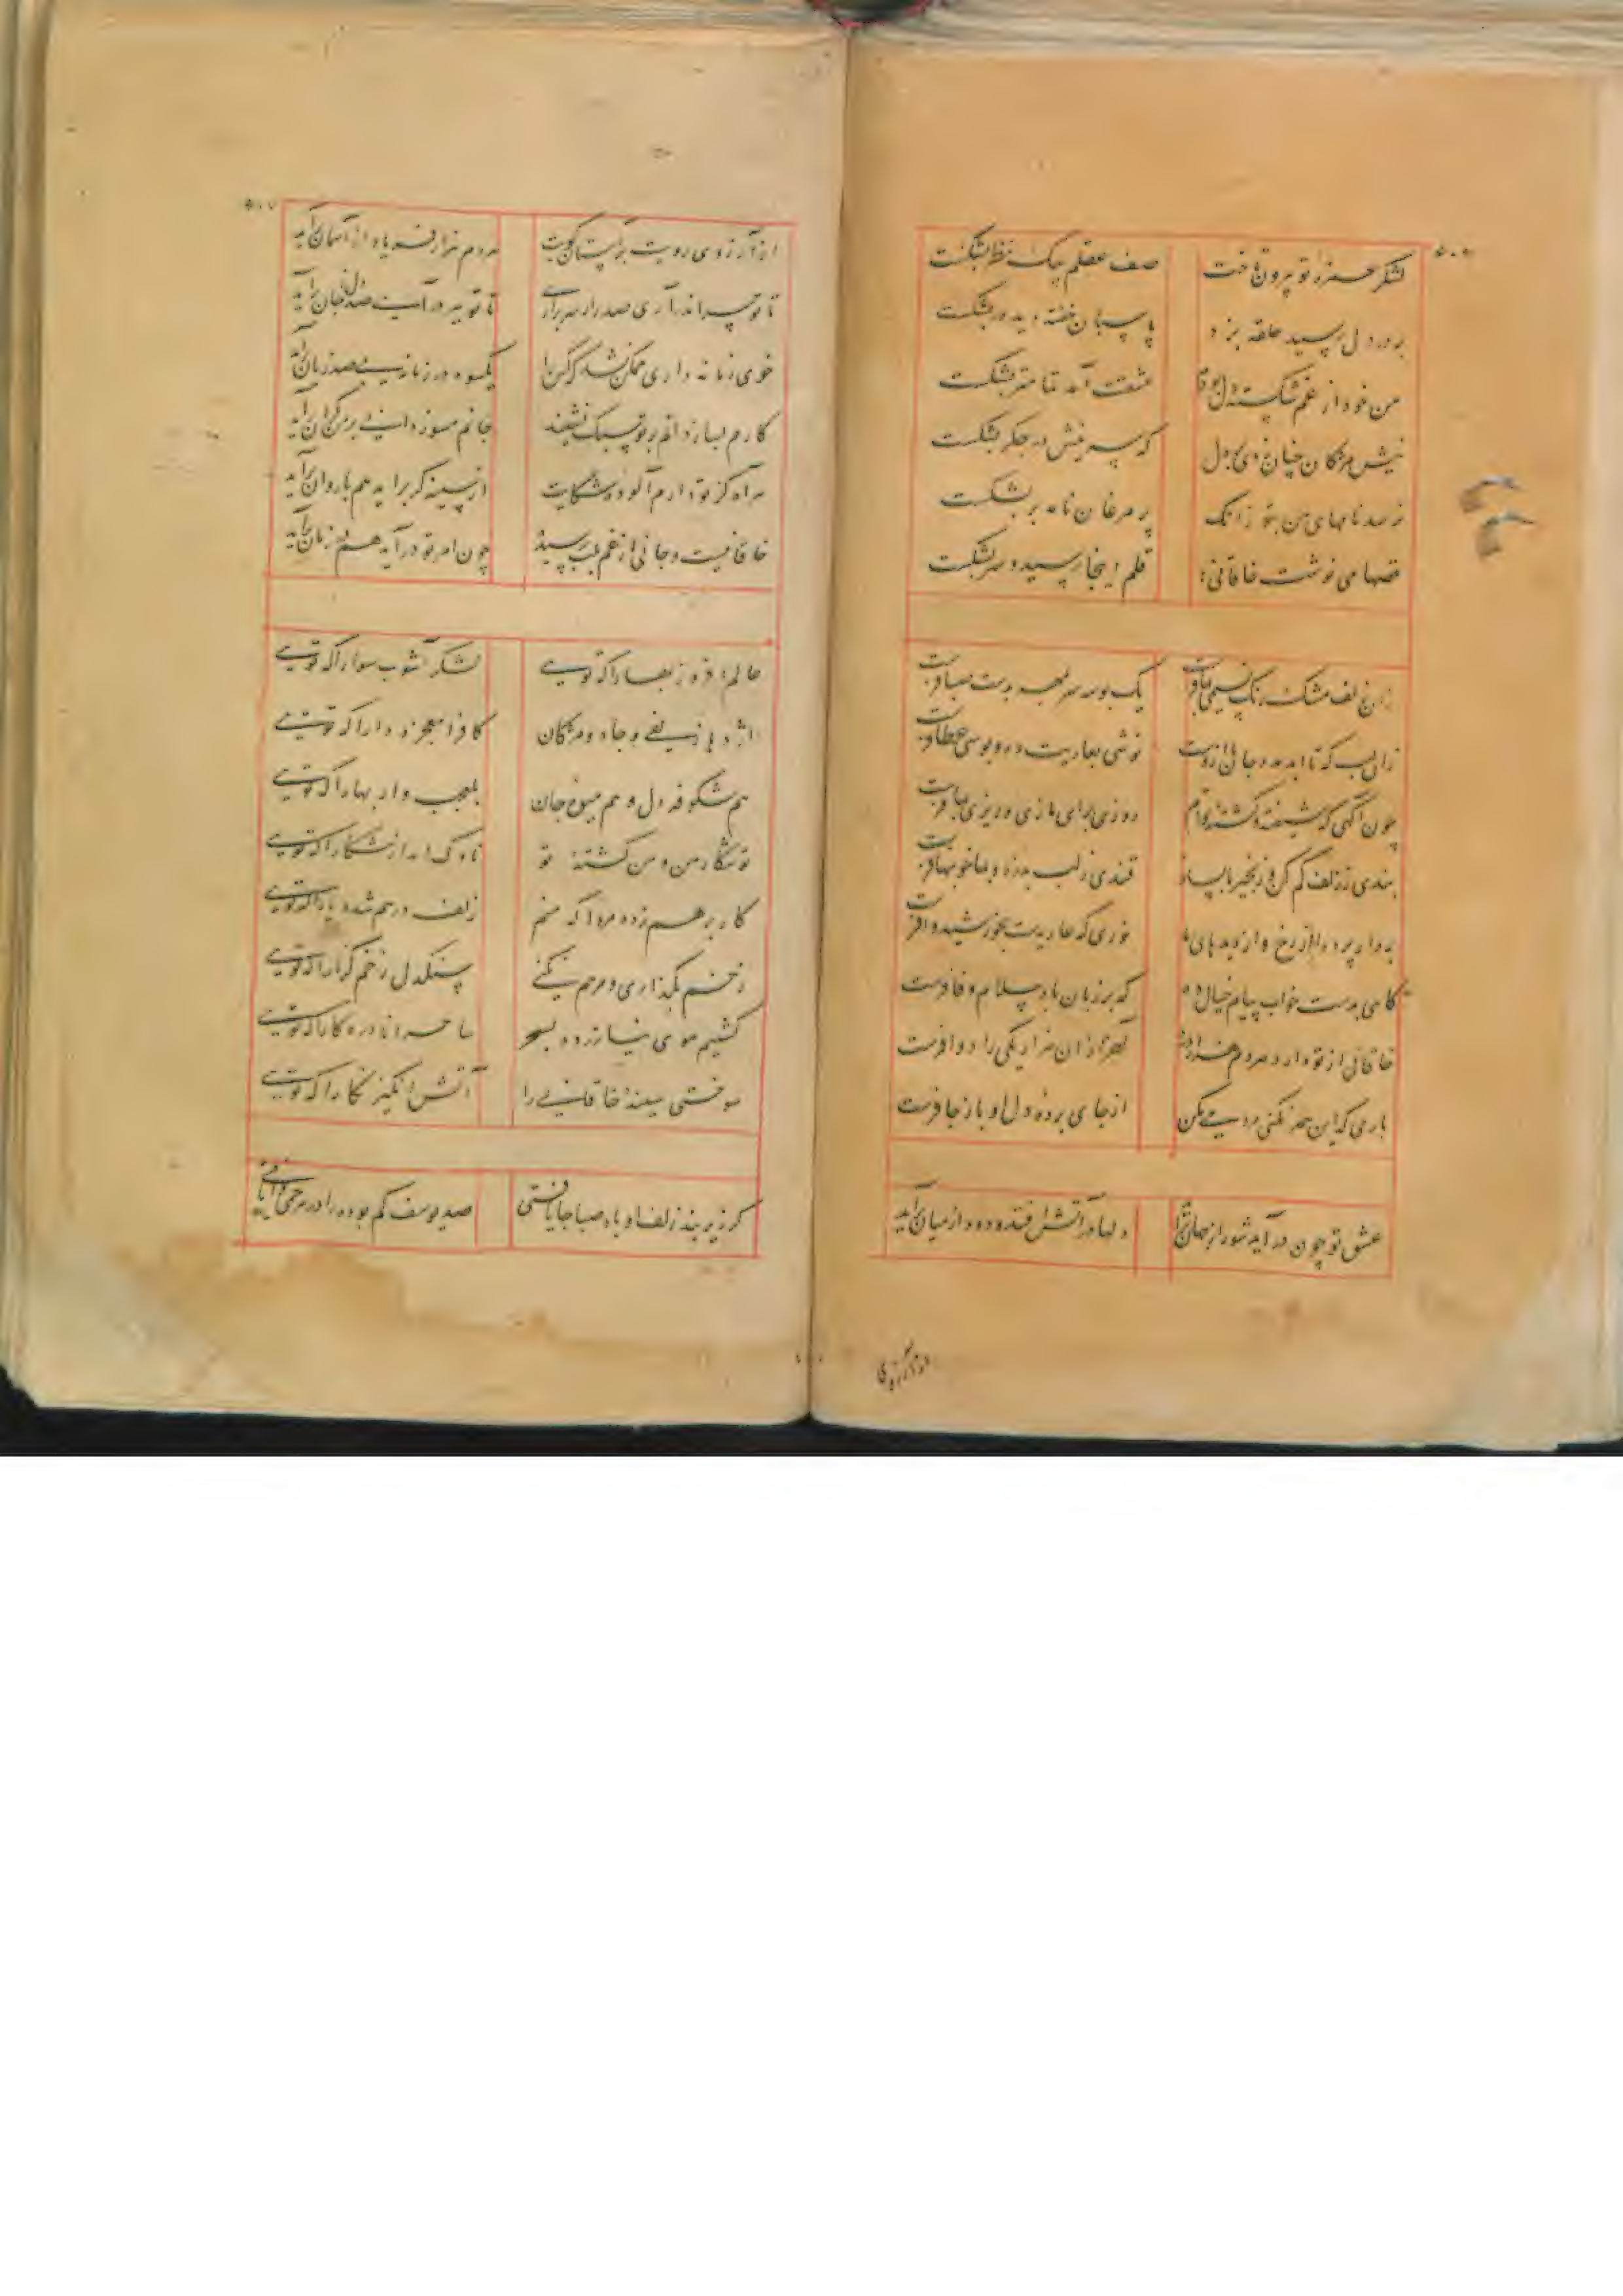 لشکر غمزهٔ تو بیرون تاخت
صف عقلم بیک نظر بشکست
بر در دل رسید حلقه بزد
پاسبان خفته دید در بشکست
من خود از غم شکسته دل بودم
عشقت آمد تمامتر بشکست
نیش مژگان چنان زدی بر دل
که سر نیش در جگر بشکست
نرسد نامهای من بتو زانک
پر مرغان نامه بر بشکست
قصها می نوشت خاقانی
قلم اینجا رسید و سر بشکست
زان زلف مشک رنگ نسیمی بما فرست
یک بوسه سر بمهر بدست صبا فرست
زان لب که تا ابد مدد جان ما ازوست
نوشی بعاریت ده و بوسی عطا فرست
چون آگهی که شیفته و کشتهٔ توام
روزی برای ما زی و ریزی بما فرست
بندی ز زلف کم کن و زنجیر ما بساز
قندی ز لب بدزد و بما خونبها فرست
بردار پرده از رخ و از دیدهای ما
نوری که عاریت بخورشید ده فرست
گاهی بدست خواب پیام خیال ده
گه بر زبان باد سلام وفا فرست
خاقانی از تو دارد هر دم هزار درد
آخر از آن هزار یکی را دوا فرست
باری گر این همه نکنی مردمی بکن
از جای برده دل او باز جا فرست
عشق تو چون درآید شور از جهان برآید
دلها در آتش افتد دود از میان برآید
در آرزوی
از آرزوی رویت بر آستان کویت
هر دم هزار فریاد از آسمان برآید
تا تو سر اندر آری صد راز سر برآری
تا تو ببر درآیی صد دل ز جان برآید
خوی زمانه داری ممکن نشد که کس را
یکسود در زمانه بی صد زیان برآید
کارم بساز دانم بر تو سبک نشیند
جانم مسوز دانی بر من گران برآید
هر آه کز تو دارم آلودهٔ شکایت
از سینه گر برآید هم با روان برآید
خاقانیست و جانی از غم بلب رسیده
چون امر تو درآید هم در زمان برآید
عالم افروز بهارا که تویی
لشکر آشوب سوارا که تویی
اژدها زلفی و جادو مژگان
کافرا معجزه دارا که تویی
هم شکوفهٔ دل و هم میوهٔ جان
بلعجب وار بهارا که تویی
تو شکار من و من کشتهٔ تو
ناوک انداز شکارا که تویی
کار برهم زده مردا که منم
زلف درهم شده یارا که تویی
زخم بگذاری و مرهم نکنی
سنگدل زخم گذارا که تویی
کشتیم موی نیازرده بسحر
ساحرا نادره کارا که تویی
سوختی سینهٔ خاقانی را
آتش انگیز نگارا که تویی
گر زیر بند زلف او باد صبا جا یافتی
صد یوسف گم بوده را در هر خمی وا یافتی